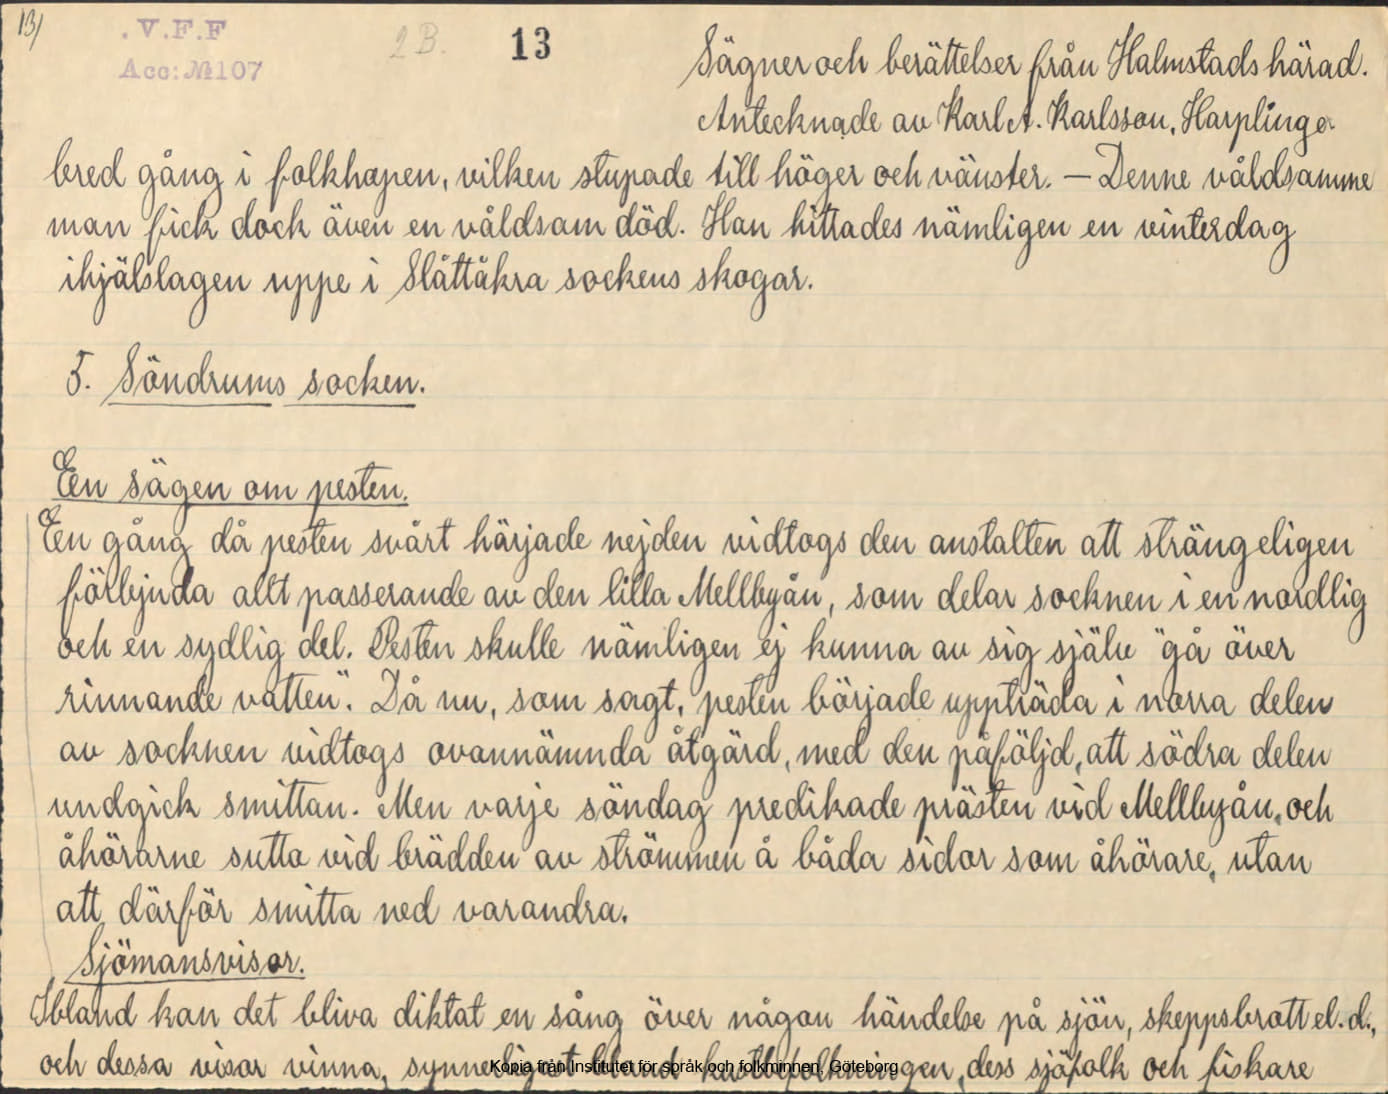 13/
. V.F.F
Acc: № 107
2 B.
13
Sägner och berättelser från Halmstads härad.
Antecknade av Karl A. Karlsson, Harplinge
bred gång i folkhopen, vilken stupade till höger och vänster. — Denne våldsamme
man fick dock även en våldsam död. Han hittades nämligen en vinterdag
ihjälslagen uppe i Slättåkra sockens skogar.
5. Söndrums socken.
En sägen om pesten.
En gång då pesten svårt härjade nejden vidtogs den anstalten att strängeligen
förbjuda allt passerande av den lilla Mellbyån, som delar socknen i en nordlig
och en sydlig del. Pesten skulle nämligen ej kunna av sig själv "gå över
rinnande vatten". Då nu, som sagt, pesten började uppträda i norra delen
av socknen vidtogs ovannämnda åtgärd, med den påföljd, att södra delen
undgick smittan. Men varje söndag predikade prästen vid Mellbyån, och
åhörarne sutto vid brädden av strömmen å båda sidor som åhörare, utan
att därför smitta ned varandra.
Sjömansvisor.
Ibland kan det bliva diktat en sång över någon händelse på sjön, skeppsbrott el. d.,
och dessa visor vinna, synnerligast bland kustbefolkningen, dess sjöfolk och fiskare
Kopia från Institutet för språk och folkminnen, Göteborg